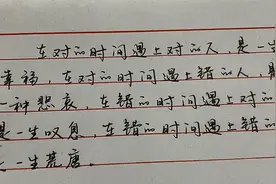 在对的时间遇上对的人，是一生
幸福，在对的时间遇上错的人，是
一种悲哀，在错的时间遇上对的
是一生叹息，在错的时间遇上错的
一生荒唐。